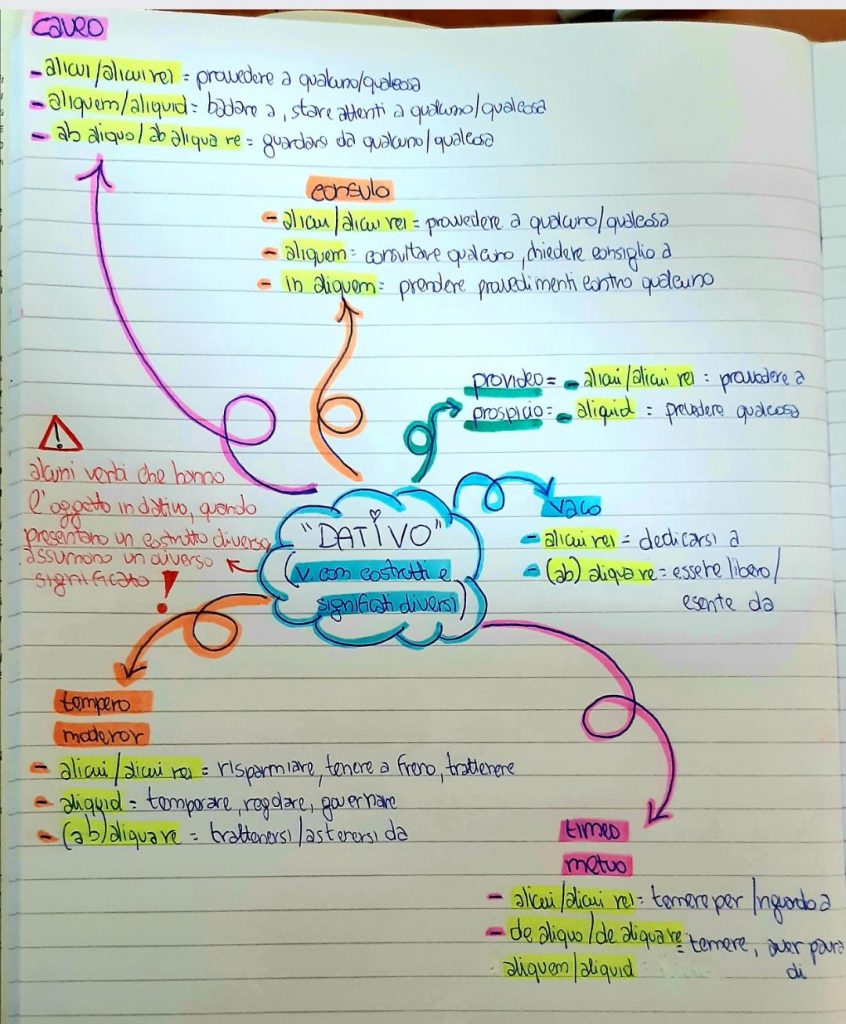 caveo
- alicui/alicui rei = provvedere a qualcuno/qualcosa
- aliquem/aliquid = badare a, stare attenti a qualcuno/qualcosa
- ab aliquo/ab aliqua re = guardarsi da qualcuno/qualcosa
consulo
- alicui/alicui rei = provvedere a qualcuno/qualcosa
- aliquem = consultare qualcuno, chiedere consiglio a
- in aliquem = prendere provvedimenti contro qualcuno
provideo = - alicui/alicui rei : provvedere a
prospicio = - aliquid : prevedere qualcosa
alcuni verbi che hanno
l'oggetto in dativo, quando
presentano un costrutto diverso
assumono un diverso
significato !
"DATIVO"
(v. con costrutti e
significati diversi)
vaco
- alicui rei = dedicarsi a
- (ab) aliqua re = essere libero/
esente da
tempero
moderor
- alicui/alicui rei = risparmiare, tenere a freno, trattenere
- aliquid = temperare, regolare, governare
- (ab) aliqua re = trattenersi/astenersi da
timeo
metuo
- alicui/alicui rei = temere per/riguardo a
- de aliquo/de aliqua re = temere, aver paura
aliquem/aliquid di